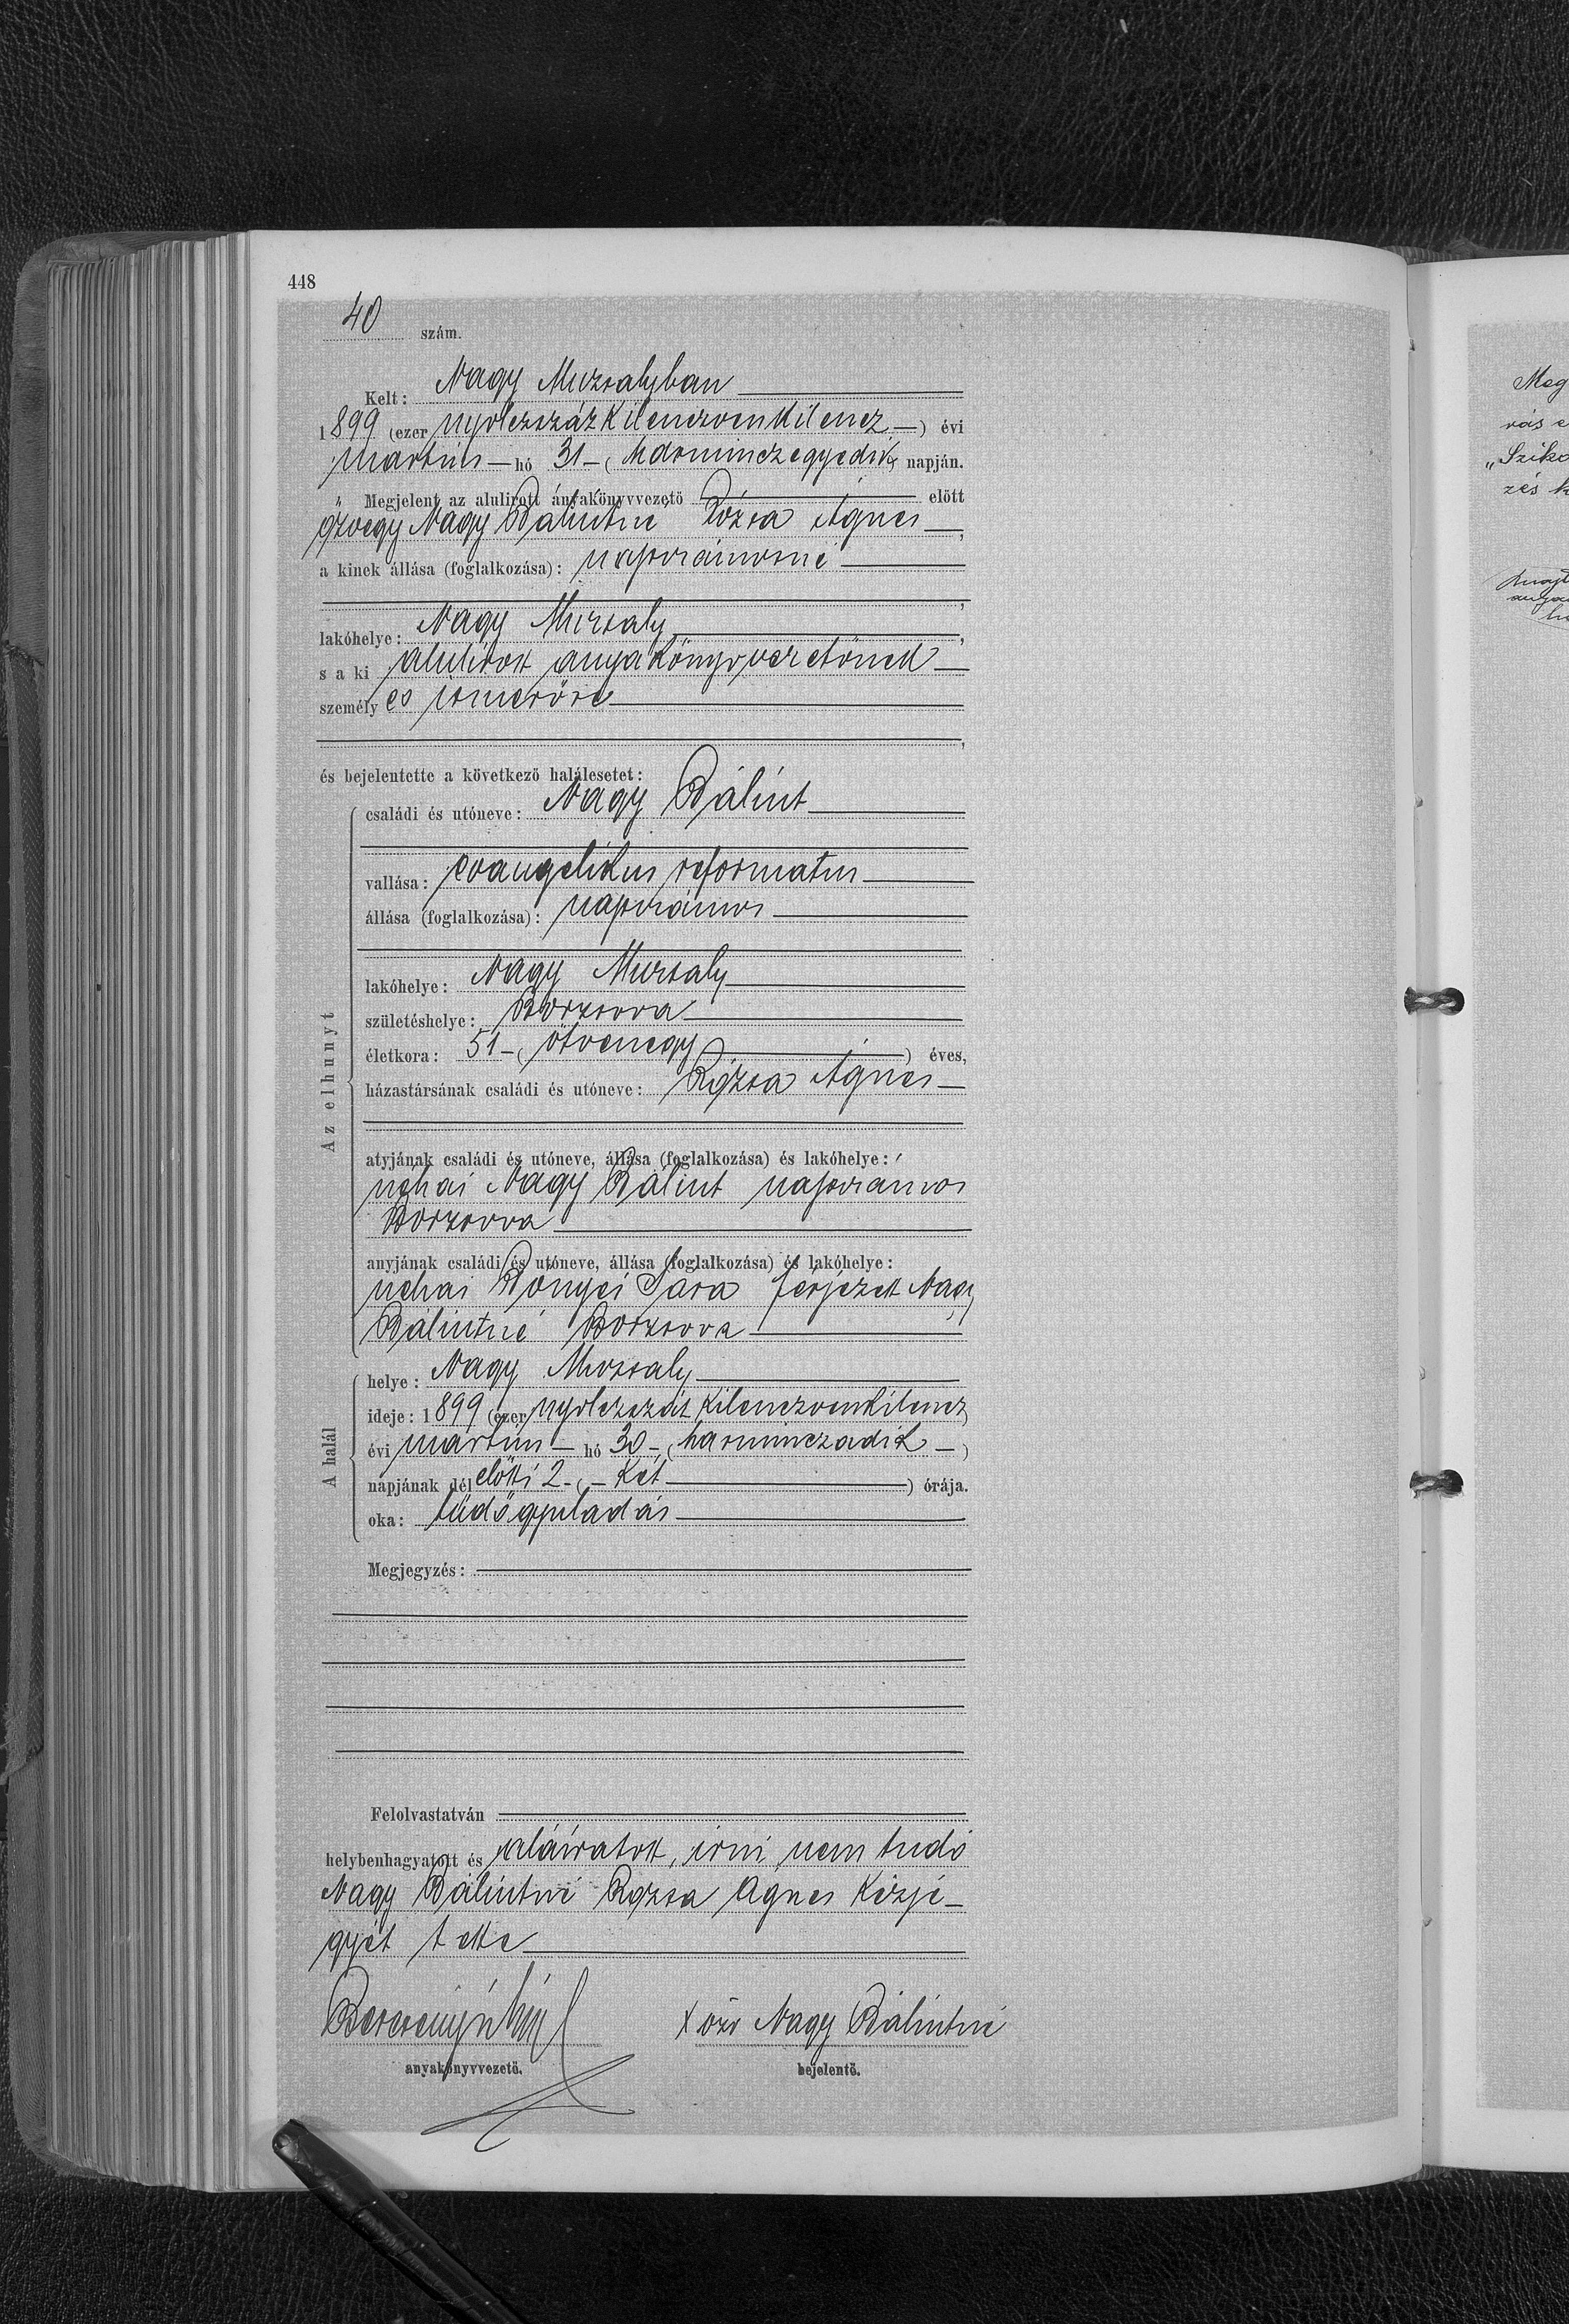 448
40 szám.
Kelt: Nagy Muzsalyban
1899 (ezer nyolczszázkilenczvenkilencz —) évi
martius — hó 31 — (harminczegyedik) napján.
Megjelent az alulirott anyakönyvvezető előtt
özvegy Nagy Bálintné Rózsa Ágnes —,
a kinek állása (foglalkozása): napszámosné
lakóhelye: Nagy Muzsaly,
s a ki alulirott anyakönyvvezetőnek
személyes ismerőse
és bejelentette a következő halálesetet:
Az elhunyt
családi és utóneve: Nagy Bálint
vallása: evangelikus reformatus
állása (foglalkozása): napszámos
lakóhelye: Nagy Muzsaly
születéshelye: Borzsova
életkora: 51 — (ötvenegy) éves,
házastársának családi és utóneve: Rózsa Ágnes —
atyjának családi és utóneve, állása (foglalkozása) és lakóhelye:
néhai Nagy Bálint napszámos
Borzsova
anyjának családi és utóneve, állása (foglalkozása) és lakóhelye:
néhai Sára férjezett Nagy
Bálintné Borzsova
A halál
helye: Nagy Muzsaly
ideje: 1899 (ezer nyolczszáz kilenczvenkilencz)
évi martius — hó 30 — (harminczadik —)
napjának délelőtti 2 — (— két) órája.
oka: tüdőgyuladás
Megjegyzés:
Felolvastatván
helybenhagyatott és aláiratott, irni nem tudó
Nagy Bálintné Rózsa Ágnes kézje-
gyét tette
anyakönyvvezető.
x özv Nagy Bálintné
bejelentő.